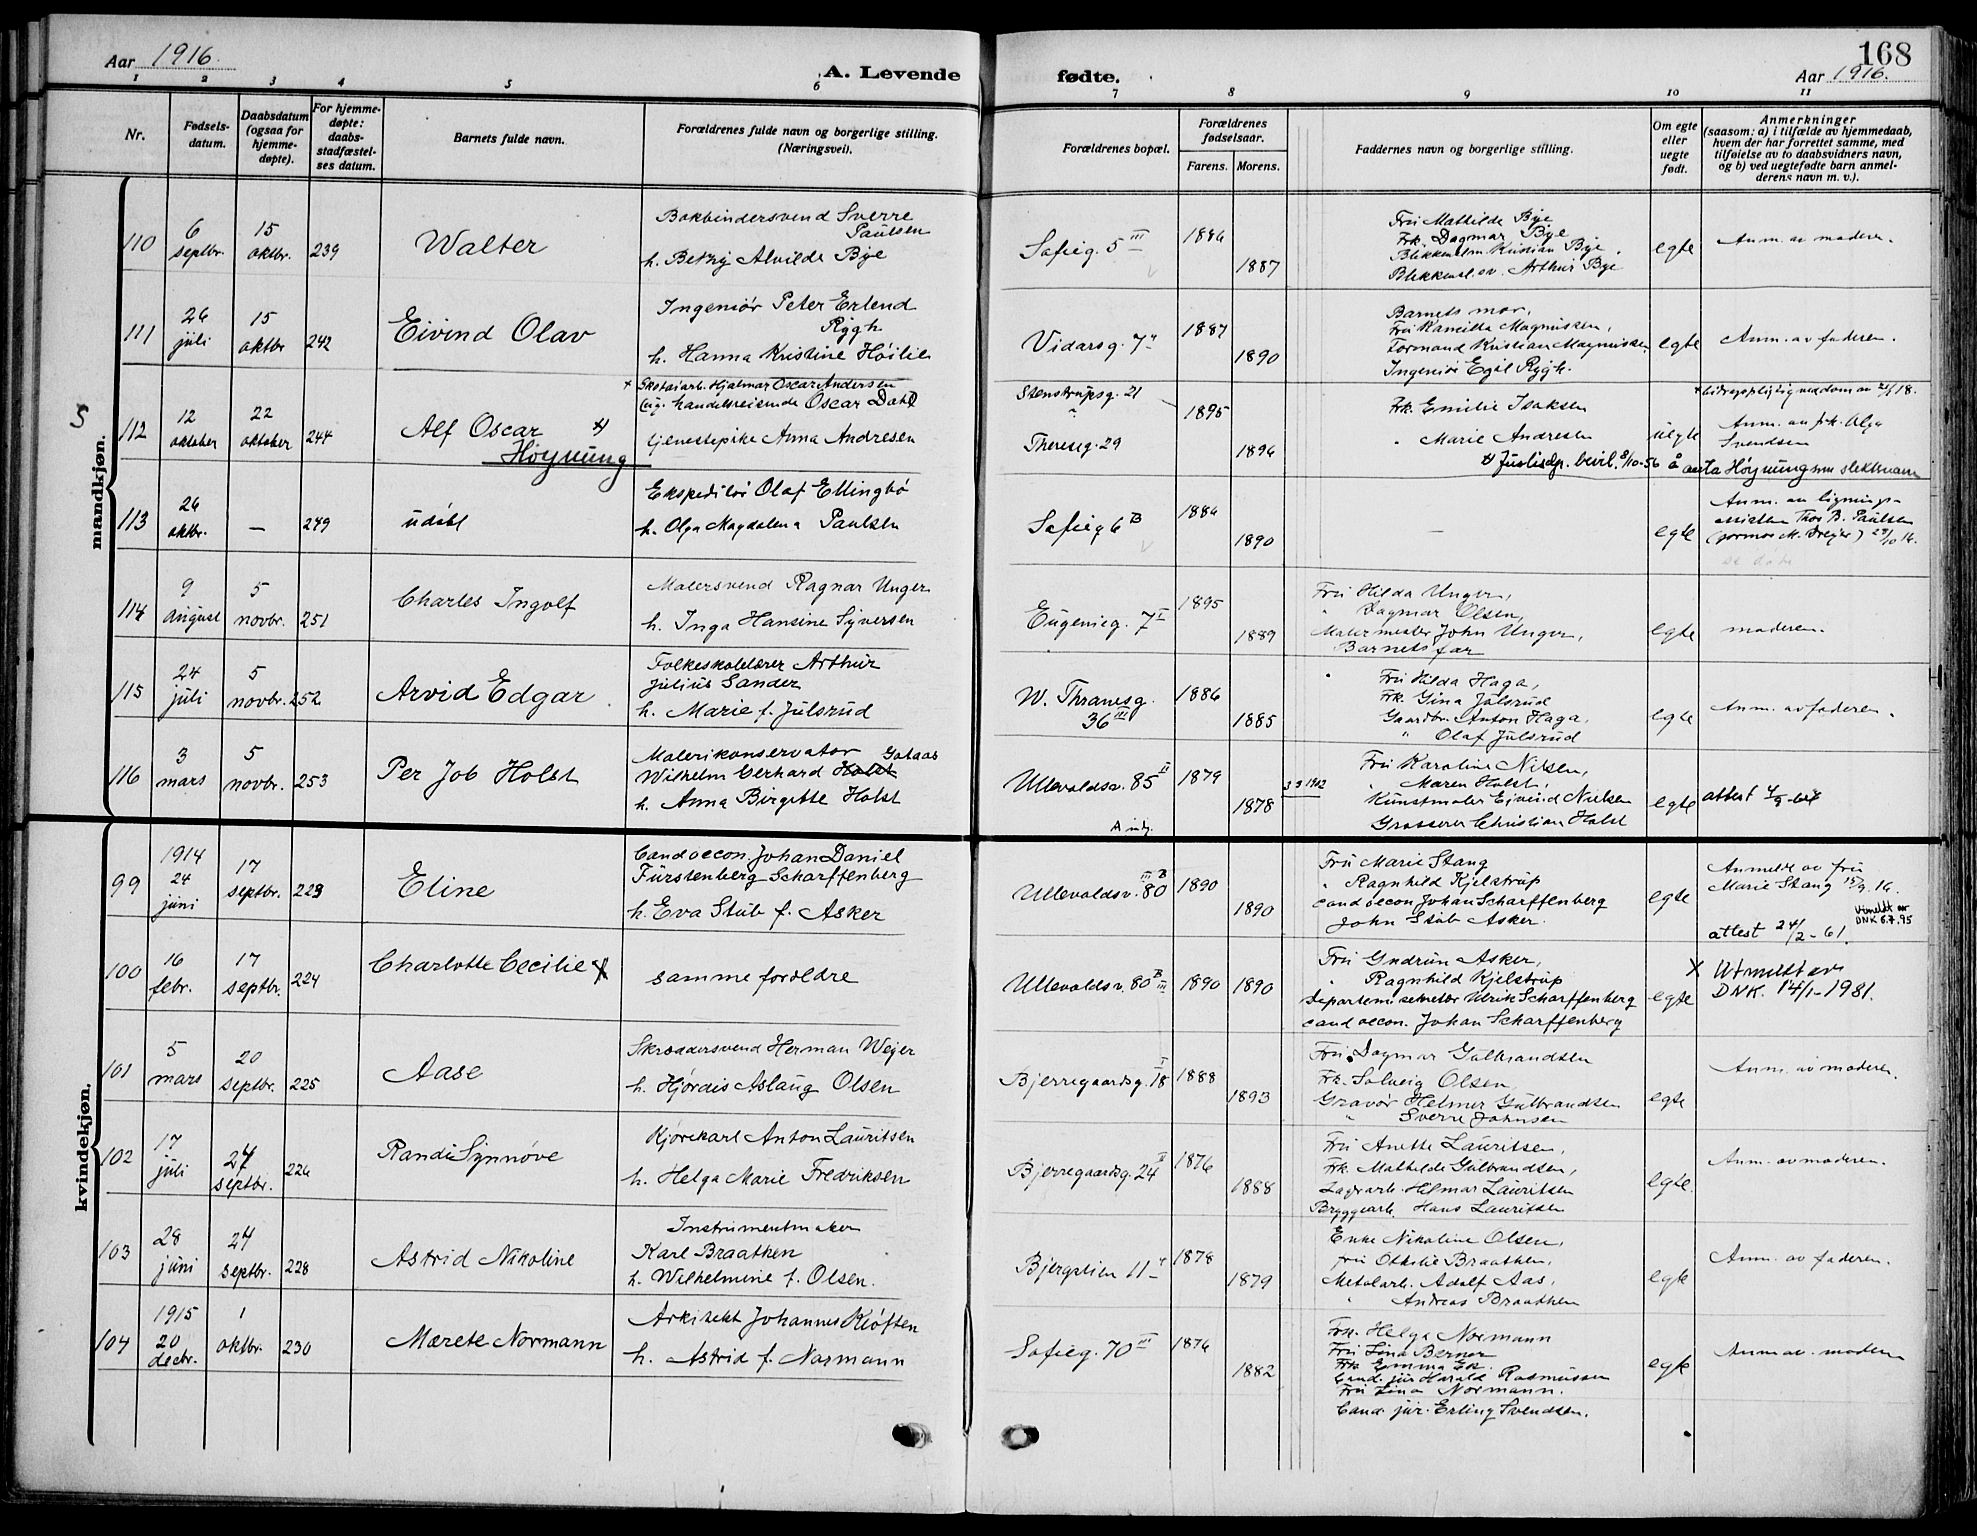 Aar 1916.
A. Levende fødte.
168
Aar 1916.
1 2 3 4 5 6 7 8 9 10 11
Nr.
Fødsels-
datum.
Daabsdatum
(ogsaa for
hjemme-
døpte).
For hjemme-
døpte:
daabs-
stadfæstel-
ses datum.
Barnets fulde navn.
Forældrenes fulde navn og borgerlige stilling.
(Næringsvei).
Forældrenes bopæl.
Forældrenes
fødselsaar.
Farens. Morens.
Faddernes navn og borgerlige stilling.
Om egte
eller
uegte
født.
Anmerkninger
(saasom: a) i tilfælde av hjemmedaab,
hvem der har forrettet samme, med
tilføielse av to daabsvidners navn,
og b) ved uegtefødte barn anmel-
derens navn m. v.).
mandkjøn.
110
6
septbr.
15
oktbr.
239
Walter
Bokbindersvend Sverre
Paulsen
h. Betzy Alvilde Bye
Sofieg. 5 III
1886
1887
Fru Mathilde Bye
Frk. Dagmar Bye
Blikkenslm. Kristian Bye
Blikkensl.sv. Arthur Bye
egte
Anm. av moderen.
111
26
juli
15
oktbr
242
Eivind Olav
Ingeniør Peter Erlend
Rygh
h. Hanna Kristine Høilie
Vidarsg. 7
1887
1890
Barnets mor,
Fru Kamilla Magnussen,
Formand Kristian Magnussen
Ingeniør Egil Rygh.
egte
Anm. av faderen.
5
112
12
oktober
22
oktober
244
Alf Oscar x)
Høynung
x Skotøiarb. Hjalmar Oscar Andersen
handelsreisende Oscar Dahl
tjenestepike Anna Andresen
Stenstrupsg. 21
Theresg. 29
1895
1896
Frk. Emilie Isaksen
" Marie Andresen
uegte
x bidragspligtig ved dom av 21/1 18.
Anm. av frk. Olga
Svendsen
x) Justisdp. bevil. 8/10-56 å anta Høynung som slektsnavn
113
26
oktbr.
—
249
udøbt
Ekspeditør Olaf Ellingbø
h. Olga Magdalena Paulsen
Sofieg 6 B
1886
1890
—
egte
Anm. av lignings-
assistent Thor B. Paulsen
(jormor M. Dreyer) 28/10 16.
114
9
august
5
novbr.
251
Charles Ingolf
Malersvend Ragnar Unger
h. Inga Hansine Syversen
Eugenieg. 7 I
1895
1889
Fru Hilda Unger,
" Dagmar Olsen,
Malermester John Unger,
Barnets far
egte
moderen.
115
24
juli
5
novbr.
252
Arvid Edgar
Folkeskolelærer Arthur
Julius Sander
h. Marie f. Julsrud
W. Thranesg.
36 III
1886
1885
Fru Hilda Haga,
Frk. Gina Julsrud
Gaardbr. Anton Haga,
" Olaf Julsrud
egte
Anm. av faderen.
116
3
mars
5
novbr.
253
Per Job Holst
Malerikonservator Gotaas
Wilhelm Gerhard Holst
h. Anna Birgitte Holst
Ullevoldsv. 85 II
1879
1878
3 9 1912
Fru Karoline Nilsen,
" Maren Holst,
Kunstmaler Eivind Nielsen
Grosserer Christian Holst
egte
attest 4/9-61
kvindekjøn.
99
1914
24
juni
17
septbr.
223
Eline
Cand oecon. Johan Daniel
Fürstenberg Scharffenberg
h. Eva Stub f. Asker
Ullevoldsv. 80 III B
1890
1890
Fru Marie Stang
" Ragnhild Kjelstrup
cand oecon Johan Scharffenberg
John Stub Asker.
egte
Anmeldt av fru
Marie Stang 15/9. 16.
Utmeldt av
DNK 6.7.95
attest 24/2-61.
100
16
febr.
17
septbr.
224
Charlotte Cecilie x
samme forældre
Ullevoldsv. 80 B III
1890
1890
Fru Gudrun Asker,
" Ragnhild Kjelstrup
Departem.sekretær Ulrik Scharffenberg
cand oecon. Johan Scharffenberg
egte
x Utmeldt av
DNK. 14/1-1981.
101
5
mars
20
septbr.
225
Aase
Skræddersvend Herman Weyer
h. Hjørdis Aslaug Olsen
Bjerregaardsg. 18 I
1888
1893
Fru Dagmar Gulbrandsen
Frk. Solveig Olsen
Gravør Helmer Gulbrandsen
" Sverre Johnsen
egte
Anm. av moderen.
102
17
juli
24
septbr.
226
Randi Synnøve
Kjørekarl Anton Lauritsen
h. Helga Marie Fredriksen
Bjerregaardsg. 24 II
1876
1888
Fru Anette Lauritsen,
Frk. Mathilde Gulbrandsen,
Lagerarb. Hilmar Lauritsen
Bryggearb. Hans Lauritsen
egte.
Anm. av moderen.
103
28
juni
24
septbr.
228
Astrid Nikoline
Instrumentmaker
Karl Braathen
h. Wilhelmine f. Olsen.
Bjergstien 11
1878
1879
Enke Nikoline Olsen,
fru Othilie Braathen,
Metalarb. Adolf Aas,
" Andreas Braathen
egte
Anm. av faderen.
104
1915
20
decbr.
1
oktbr.
230
Mærete Normann
Arkitekt Johannes Kløften
h. Astrid f. Normann
Sofieg. 70 III
1876
1882
Frk. Helga Normann
Fru Lina Berner
Frk. Emma Ek.
Cand. jur Harald Rasmussen
Fru Lina Normann.
Cand. jur. Erling Svendsen.
egte
Anm av. moderen